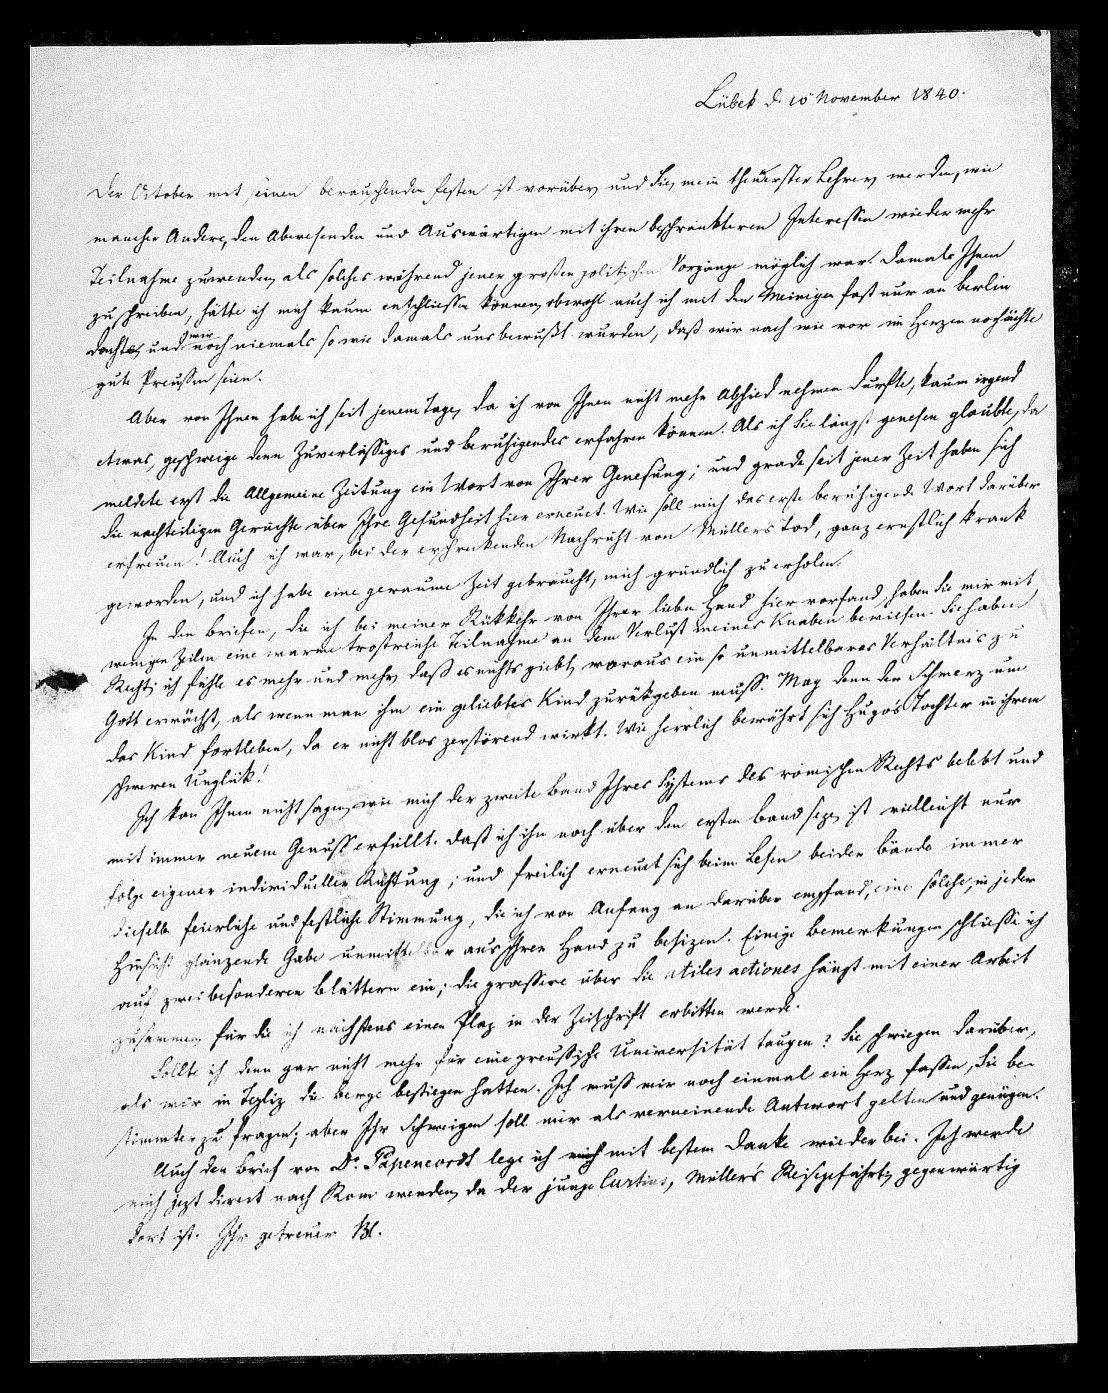 Lübek d. 10 November 1840.
Der October mit seinen berauschenden Festen ist vorüber, und Sie, mein theuerster Lehrer, werden, wie
mancher Andere, den Abwesenden und Auswärtigen mit ihren beschränkteren Interessen wieder mehr
Teilnahme zuwenden, als solches während jener großen politischen Vorgänge möglich war. Damals Ihnen
zu schreiben, hätte ich mich kaum entschliessen können, obwohl auch ich mit den Meinigen fast nur an Berlin
dachte, und wir noch niemals so wie damals uns bewußt wurden, daß wir nach wie vor im Herzen noch ächte
gute Preussen seien.
Aber von Ihnen habe ich seit jenem Tage, da ich von Ihnen nicht mehr Abschied nehmen durfte, kaum irgend
etwas, geschweige denn Zuverlässiges und beruhigendes erfahren können. Als ich Sie längst genesen glaubte, da
meldete erst die Allgemeine Zeitung ein Wort von Ihrer Genesung; und grade seit jener Zeit haben sich
die nachteiligen Gerüchte über Ihre Gesundheit hier erneuet. Wie soll mich das erste beruhigende Wort darüber
erfreuen! Auch ich war, bei der erschreckenden Nachricht von Müllers Tod, ganz ernstlich krank
geworden, und ich habe eine geraume Zeit gebraucht, mich gründlich zu erholen.
In den Briefen, die ich bei meiner Rükkehr von Ihrer lieben Hand hier vorfand, haben Sie mir mit
wenigen Zeilen eine warme trostreiche Teilnahme an dem Verlust meines Knaben bewiesen. Sie haben
Recht; ich fühle es mehr und mehr, daß es nichts giebt, woraus ein so unmittelbares Verhältnis zu
Gott erwächst, als wenn man ihm ein geliebtes Kind zurükgeben muss. Mag denn der Schmerz um
das Kind fortleben, da er nicht blos zerstörend wirkt. Wie herrlich bewährt sich Hugo's Tochter in ihrem
schweren Unglük!
Ich kan Ihnen nicht sagen, wie mich der zweite Band Ihres Systems des römischen Rechts belebt und
mit immer neuem Genuss erfüllt. Daß ich ihn noch über den ersten Band seze, ist vielleicht nur
Folge eigener individueller Richtung; und freilich erneuet sich beim Lesen beider Bände immer
dieselbe feierliche und festliche Stimmung, die ich von Anfang an darüber empfand, eine solche, in jeder
Hinsicht glänzende Gabe unmittelbar aus Ihrer Hand zu besizen. Einige Bemerkungen schliesse ich
auf zwei besonderen Blättern ein; die groessere über die utiles actiones hängt mit einer Arbeit
zusammen, für die ich nächstens einen Plaz in der Zeitschrift erbitten werde.
Sollte ich denn gar nicht mehr für eine preussische Universität taugen? Sie schwiegen darüber,
als wir in Tepliz die Berge bestiegen hatten. Ich muss mir noch einmal ein Herz fassen, Sie be-
stimmter zu fragen; aber Ihr Schweigen soll mir als verneinende Antwort gelten und genügen.
Auch den Brief von Dr. Papencordt lege ich mit bestem Danke wieder bei. Ich werde
mich jezt direct nach Rom wenden, da der junge Curtius, Müller's Reisegefährte, gegenwärtig
dort ist. Ihr getreuer Bl.